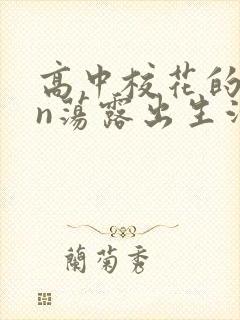 高中校花的
n荡露出生
蘭菊秀